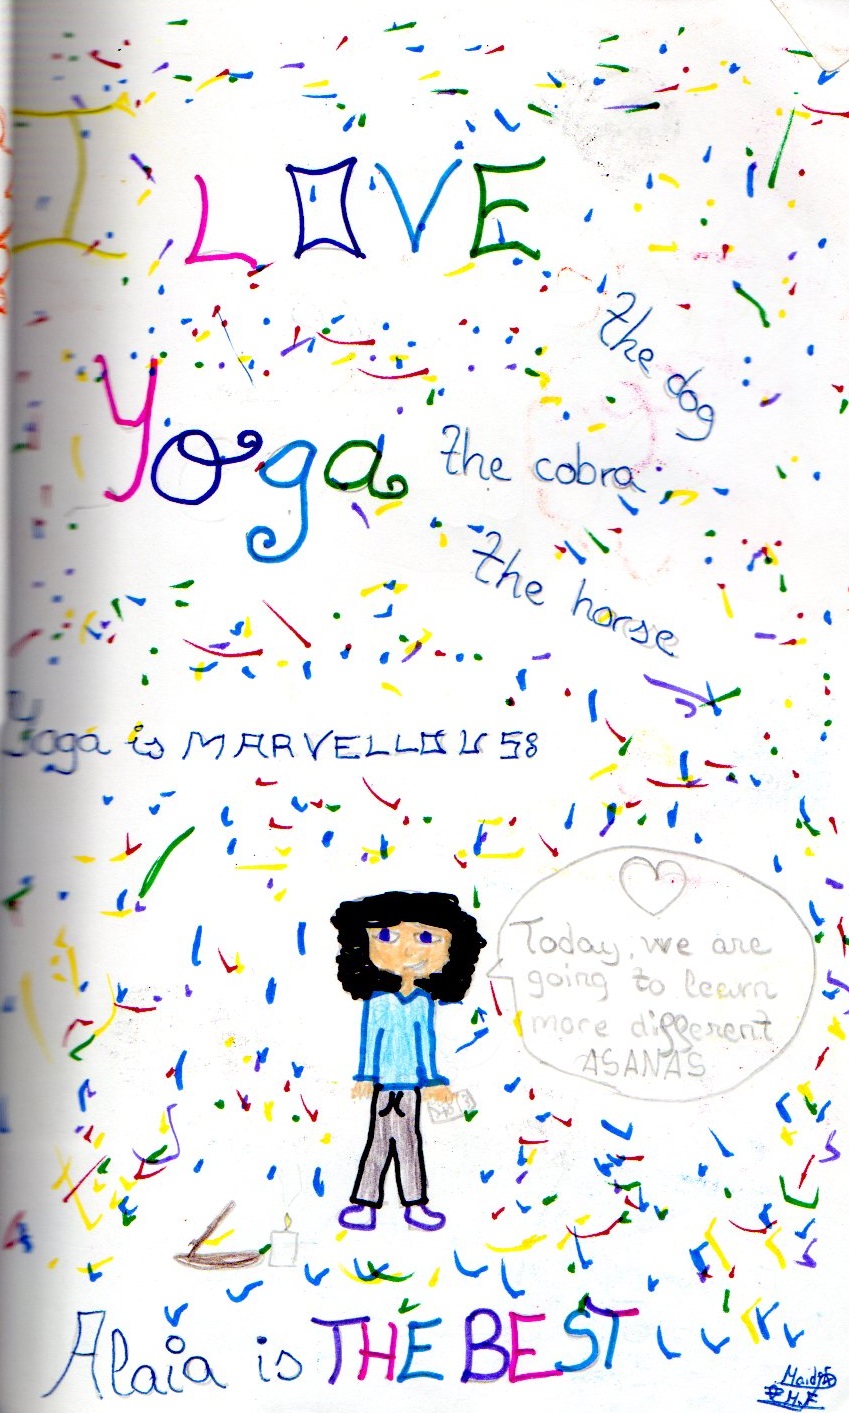 I LOVE
Yoga
the dog
the cobra
the horse
Yoga is MARVELLOUS
Today, we are
going to learn
more different
ASANAS
Alaia is THE BEST